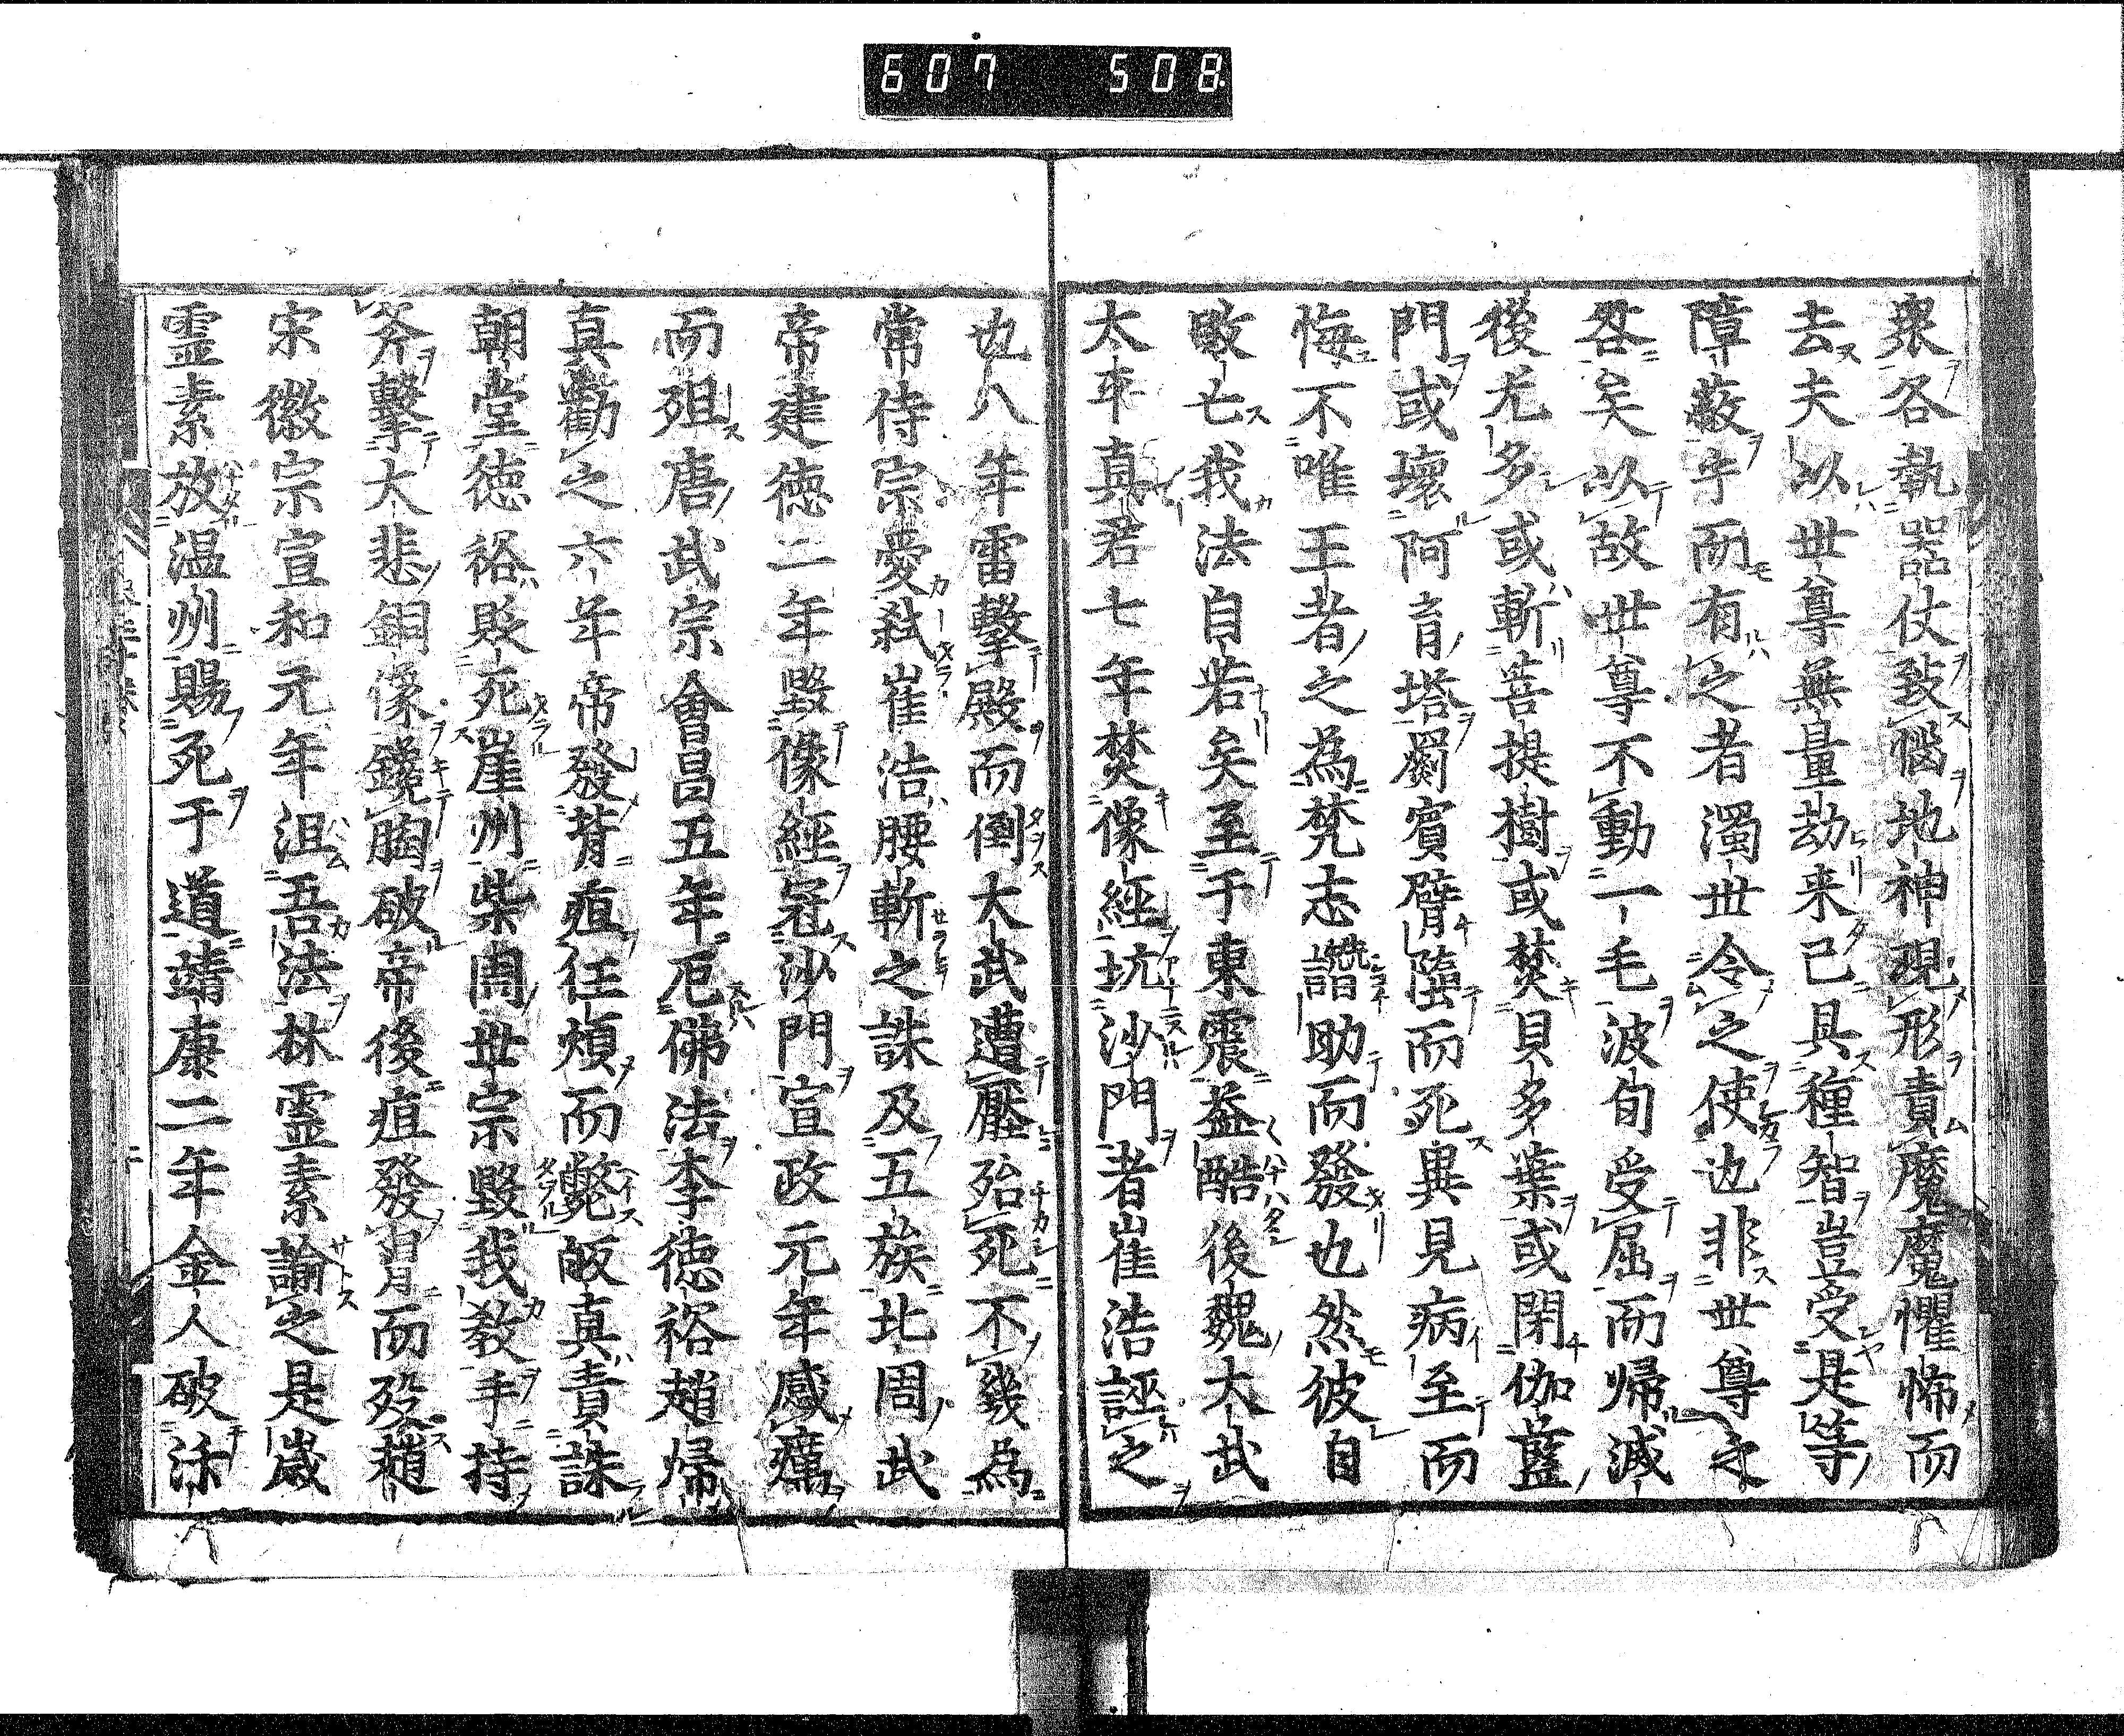 607 508
衆各執器仗致惱地神現形責魔魔懼怖而
去夫以世尊無量劫来已具種智豈受是等
障蔽乎而有之者濁世令之使也非世尊之
咎矣以故世尊不動一毛波旬受屈而帰滅
後尤多或斬菩提樹或焚貝多葉或閉伽藍
門或壞阿育塔罽賓臂墮而死異見病至而
悔不唯王者之為梵志譖助而發也然彼自
敗亡我法自若矣至于東震益酷後魏太武
太平真君七年焚像經坑沙門者崔浩誣之
也八年雷擊殿而倒大武遭壓殆死不幾為
常侍宗愛弑崔浩腰斬之誅及五族北周武
帝建徳二年毀像經冠沙門宣政元年感癘
而殂唐武宗會昌五年厄佛法李徳裕趙帰
真勸之六年帝發背疽狂煩而斃皈真責誅
朝堂徳裕貶死崖州柴周世宗毀我教手持
斧擊大悲銅像鑱胸破帝後疽發胷而殁趙
宋徽宗宣和元年沮吾法林霊素諭之是歳
霊素放温州賜死于道靖康二年金人破汴